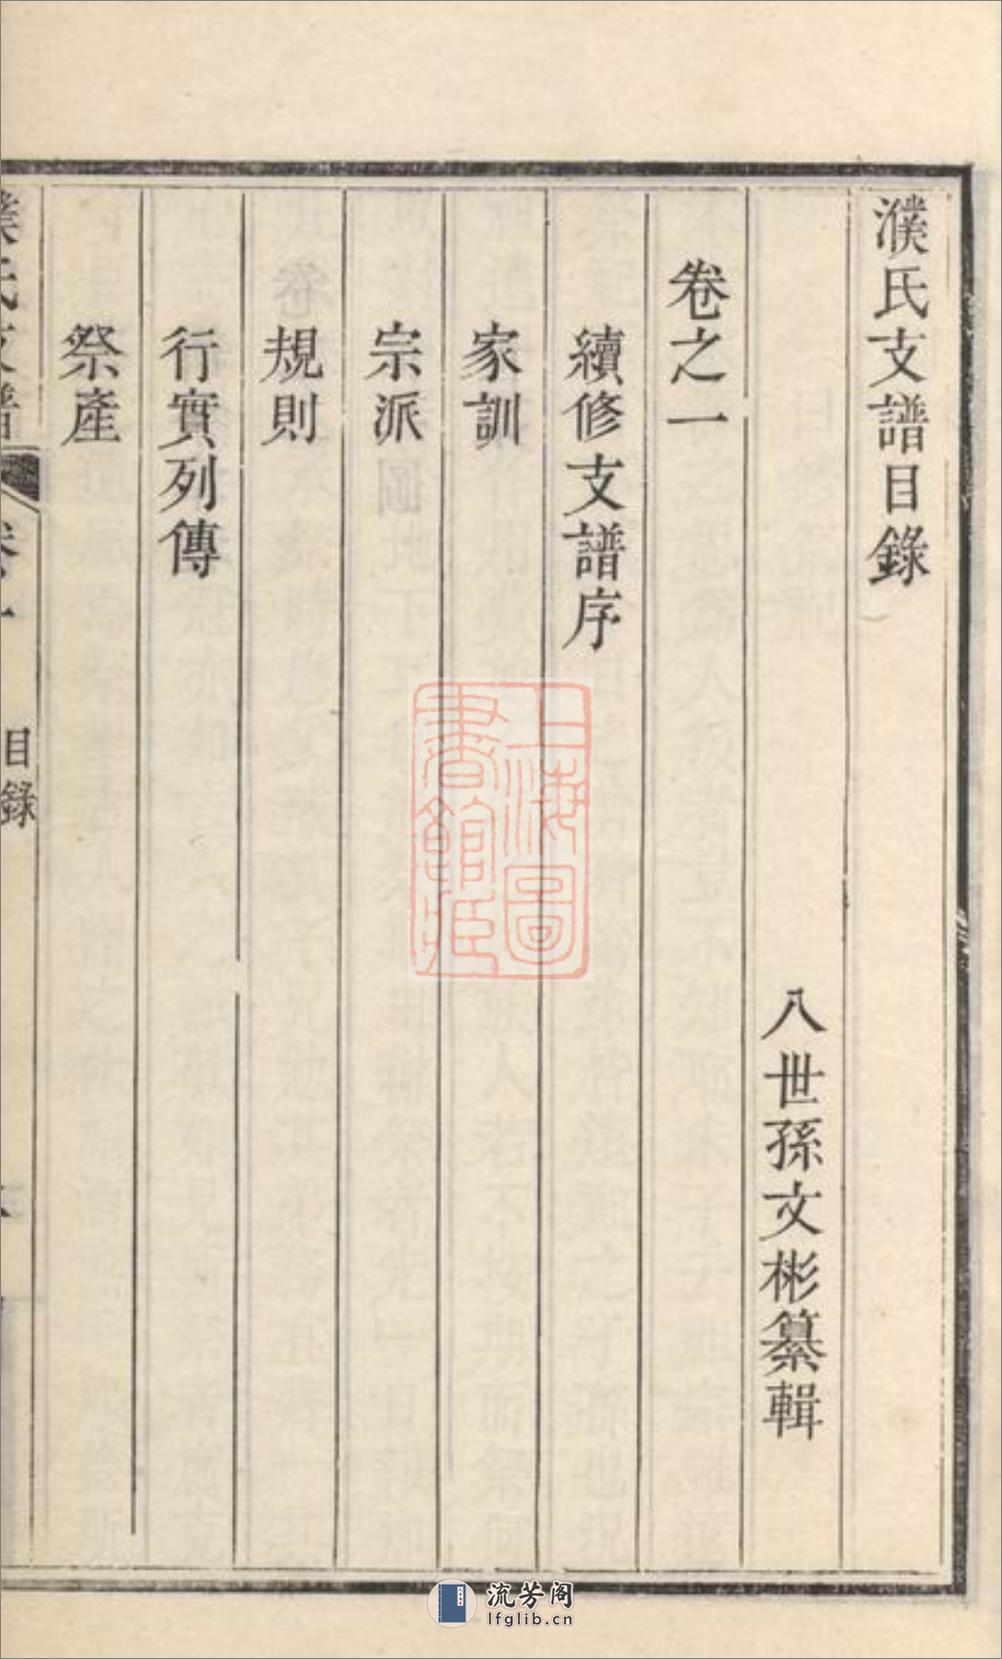 濮氏支譜目錄
八世孫文彬纂輯
卷之一
續修支譜序
家訓
宗派
規則
行實列傳
祭產
濮氏支譜
卷之一
目錄
上海圖書館藏
流芳阁
lfglib.cn